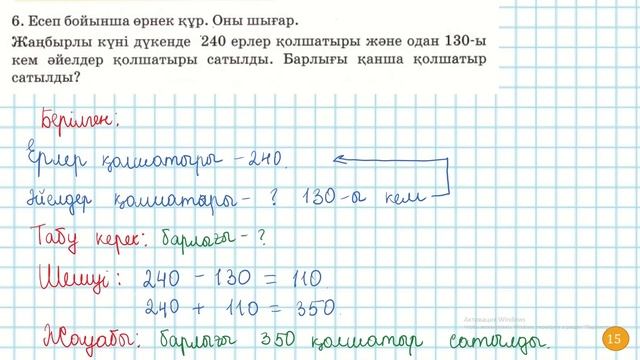 6. Есеп бойынша өрнек құр. Оны шығар.
Жаңбырлы күні дүкенде 240 ерлер қолшатыры және одан 130-ы
кем әйелдер қолшатыры сатылды. Барлығы қанша қолшатыр
сатылды?
Берілген:
Ерлер қолшатыры – 240.
Әйелдер қолшатыры – ? 130-ы кем
Табу керек: барлығы – ?
Шешуі: 240 – 130 = 110
240 + 110 = 350
Жауабы: барлығы 350 қолшатыр сатылды.
Активация Windows
15